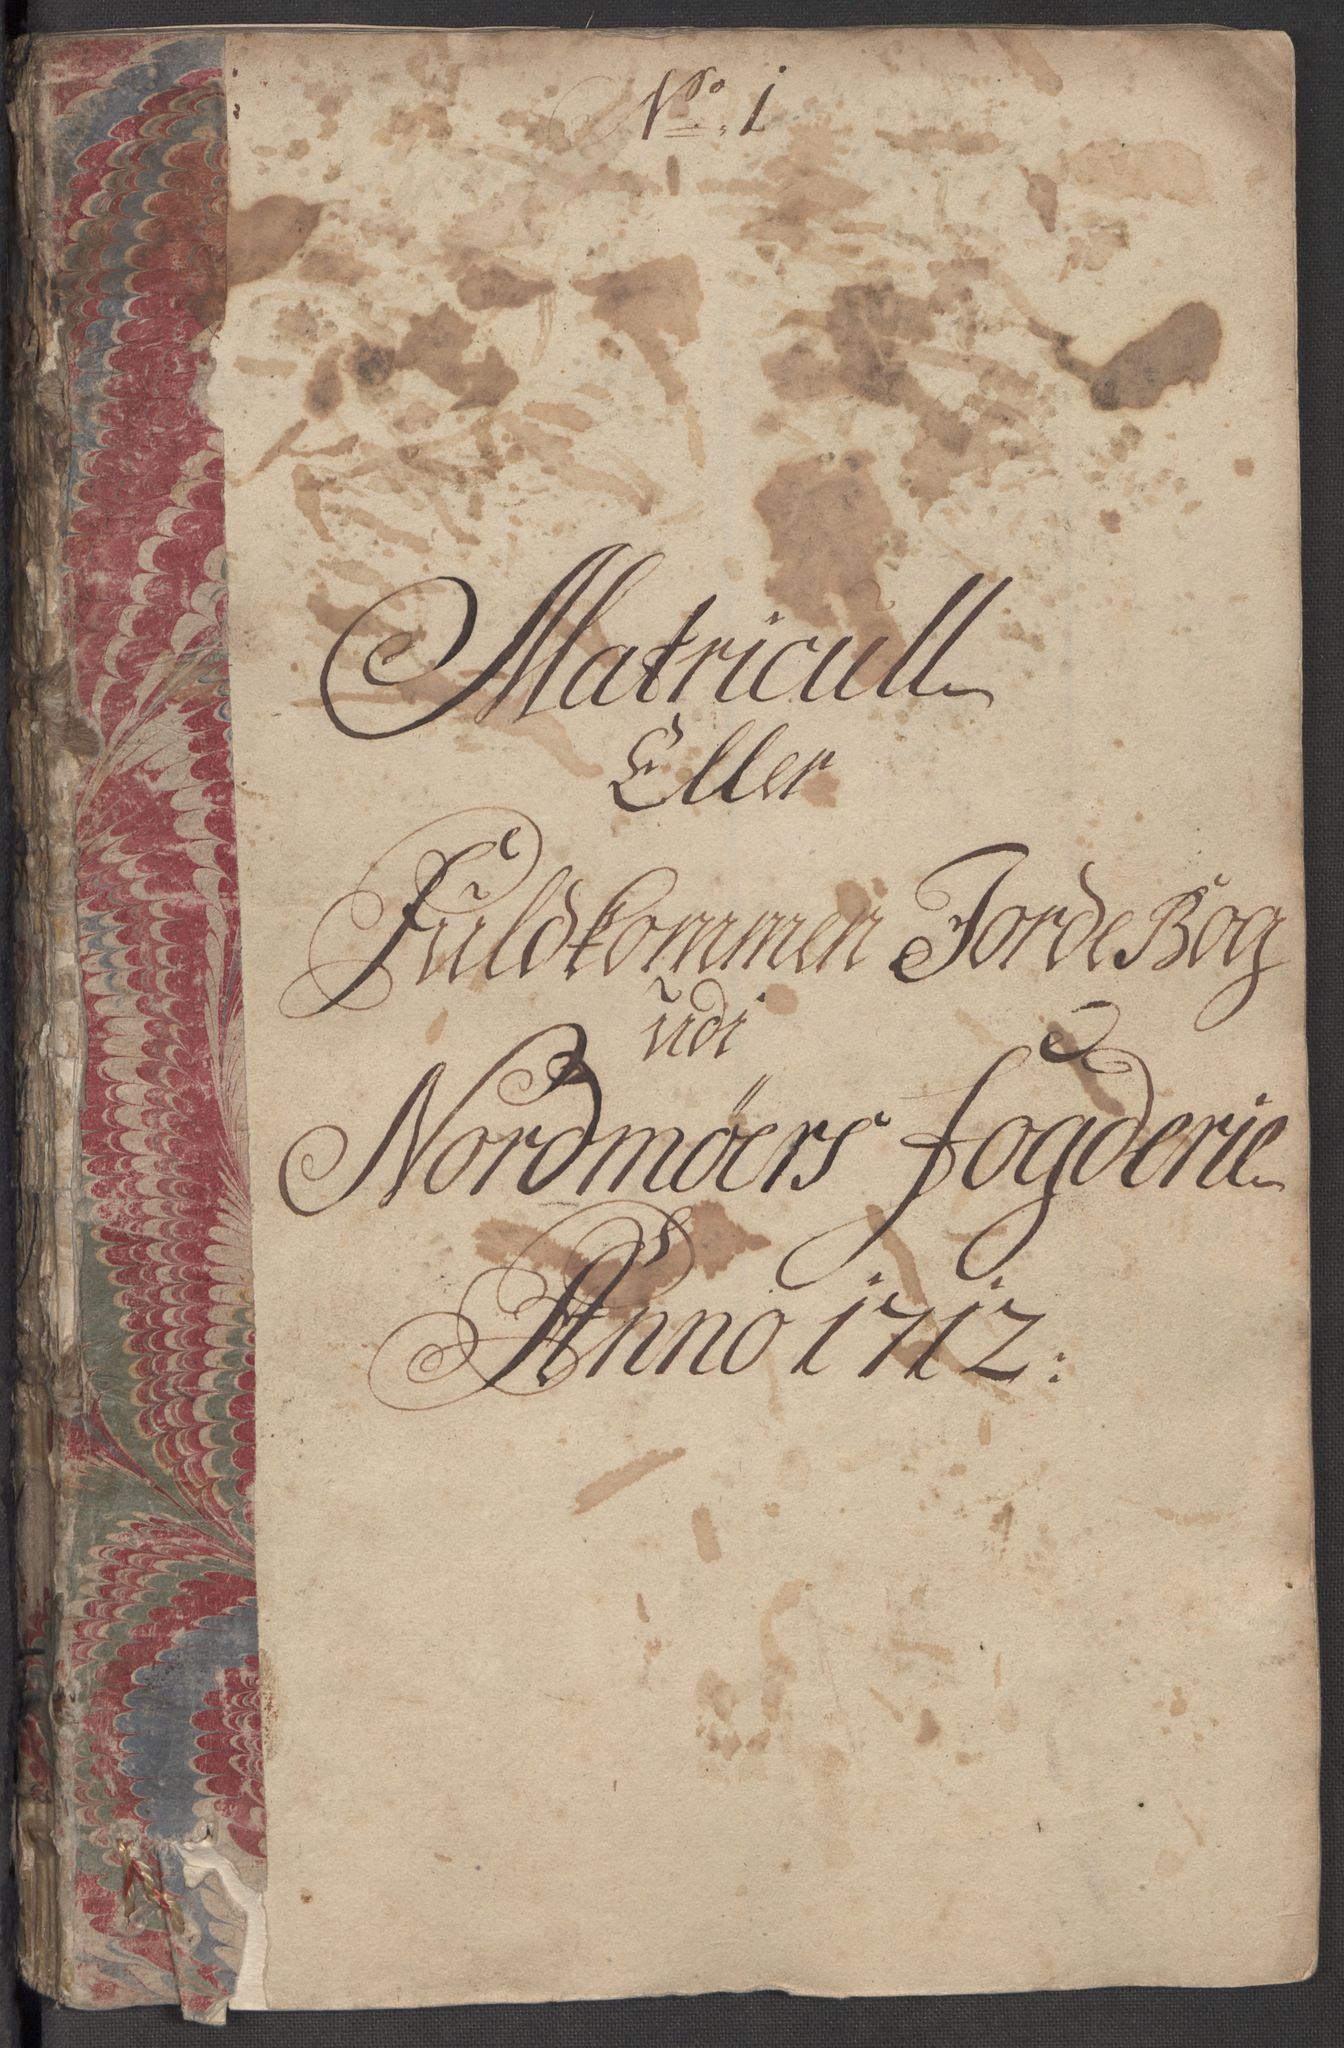 No. 1
Matricull
Eller
Fuldkommen Jorde Bog
udi
Nordmöers fogderie
Anno 1712: